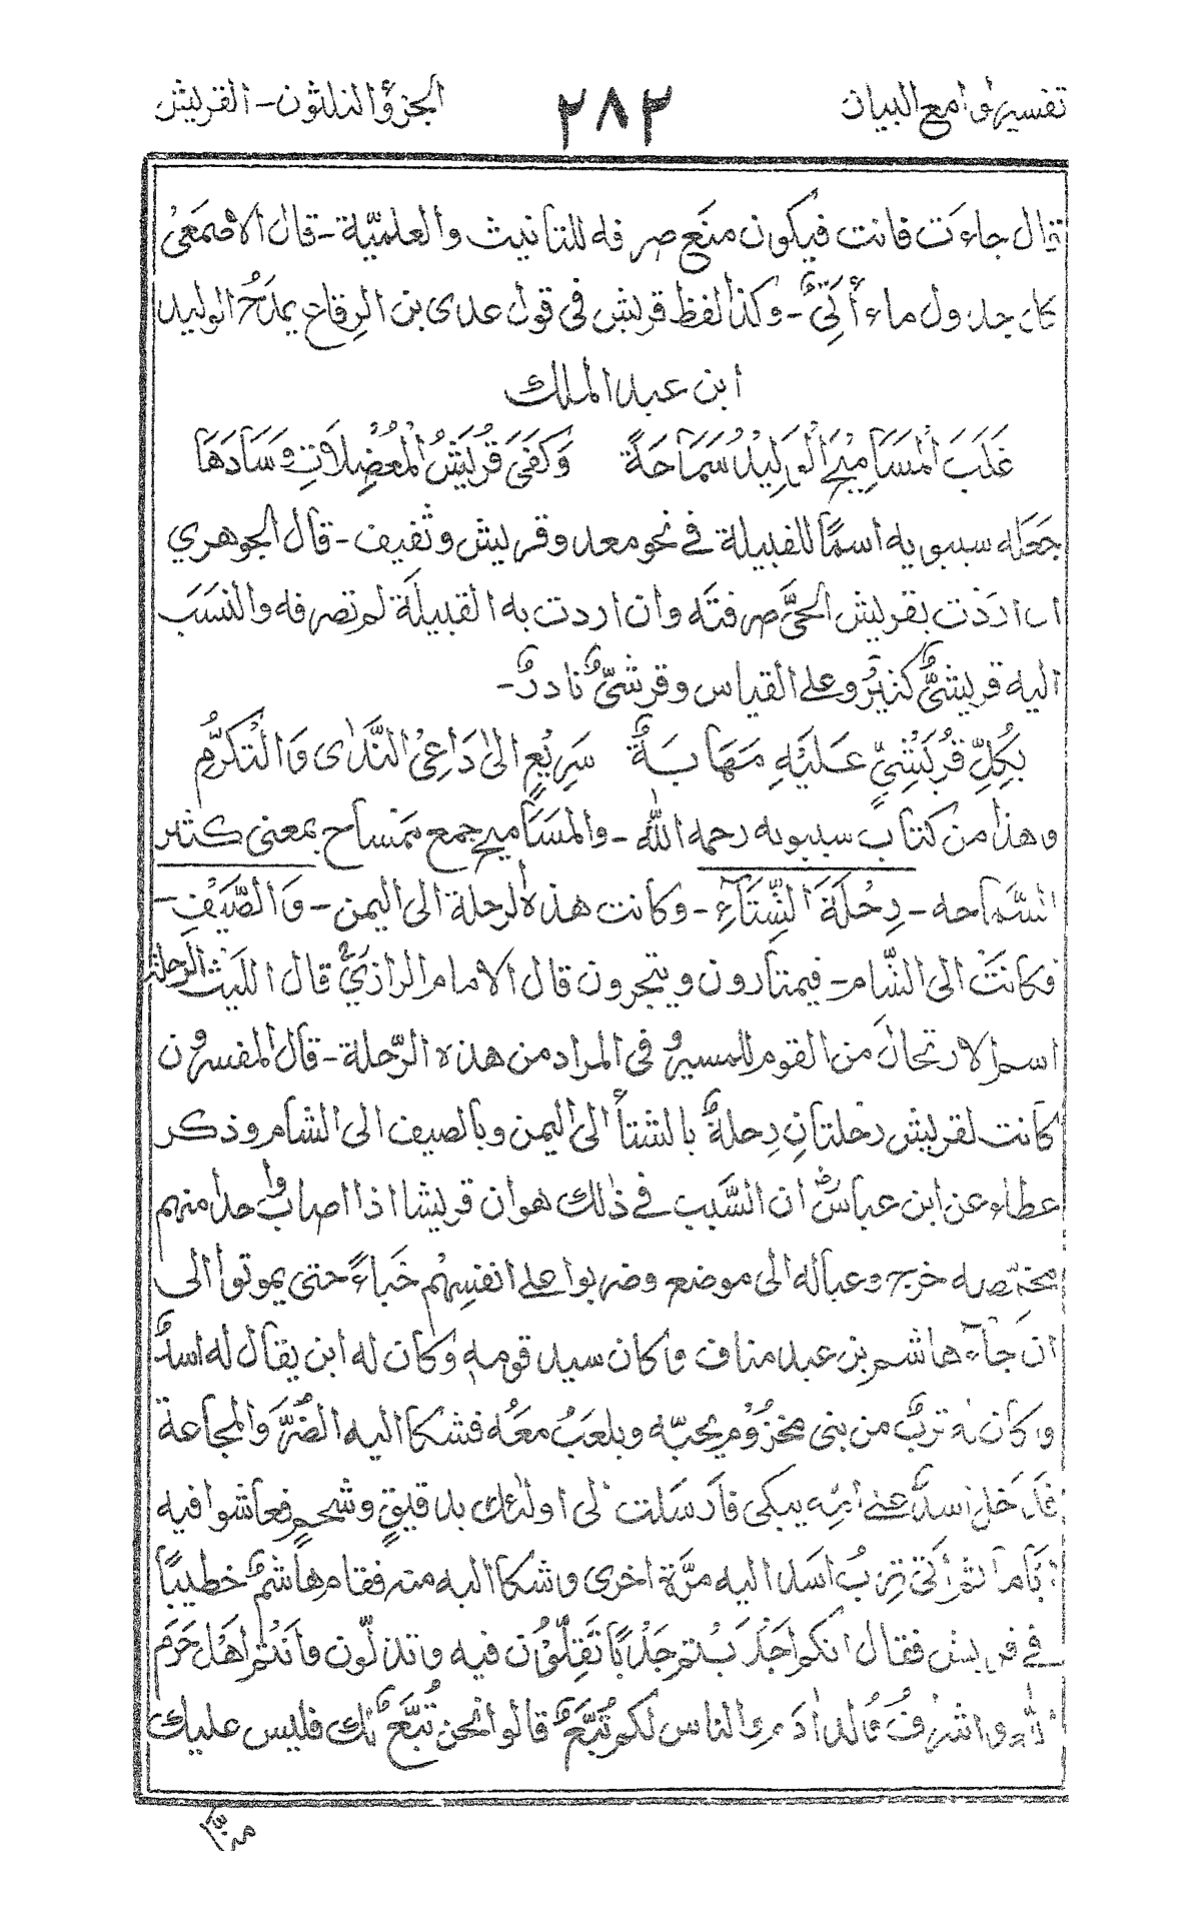 تفسير لوامع البيان ٢٨٢ الجزؤ الثلثون - القريش
قال جاءت فانت فيكون منع صرفه للتانيث والعلميّة - قال الاصمعىُ
كل جدول ماء أتىٌّ - وكذا لفظ قريش فى قول عدى بن الرقاع يمدحُ الوليد
ابن عبد الملك
غَلَبَ الْمَسَامِيْحَ الْوَلِيْدُ سَمَاحَةً وَكَفَىَ قُرَيْشُ الْمُعْضِلاَتِ وَسَادَهَا
جَعَله سيبويه اسمًا للقبيلة فى نحو معد وقريش وثقيف - قال الجوهري
ان اردت بقريش الحىَّ صرفتَه وان اردت به القبيلَة لم تصرفه والنسَب
اليه قريشىٌّ كثيرٌ وعلى القياس وقرشىٌّ نادرٌ -
بِكُلِّ قُرَيْشِيٍّ عَلَيْهِ مَهَابَةٌ سَرِيْعٍ الىٰ دَاعِىْ النَّدٰى وَالْتَكَرُّمِ
وهذا من كتاب سيبويه رحمه الله - والمسَاميح جمع مَمْساح بمعنى كثير
السَّماحه - رِحْلَةَ الشِّتَآءِ - وكانت هذه الرحلة الى اليمن - وَالصَّيْفِ -
فكانَتْ الى الشّام - فيمتارون ويتجرون قال الامام الرازيُّ قال الليث الرحلة
اسم الارتحال من القوم للمسيرُ فى المراد من هذه الرّحلة - قال المفسرون
كانت لقريش رحلتانِ رِحلةٌ بالشتأ الى اليمن وبالصيف الى الشام وذكر
عطاء عن ابن عباسؓ ان السَّبب فى ذلك هو ان قريشا اذا اصاب واحدا منهم
مخمصه خرج وعياله الى موضع وضربوا على انفسِهُم خَباءً حتى يموتوا الى
ان جاٰء هاشم بن عبد مناف وكان سيد قومهٖ وكان له ابن يقال له اسدٌ
وكان له تربٌ من بنى مخزُوْم يحبّه ويلعبُ معَه فشكا اليه الضُرَّ والمجاعة
فدخل اسدٌ على امِّه يبكى فارسَلت الى اولئك بدقيقٍ وشحمٍ فعاشوا فيه
ايّاما ثم أتى تِربُ اسَد اليه مرّة اخرى وشكا اليه منه فقام هاشمٌ خطيبًا
فى قريش فقال انكم اجْدَبْتم جَدْبًا تَقِلُّوْن فيه وتذلّون وانتُم اهْل حَرَم
الله واشرفُ وُلد اٰدم والناس لكم تُبَّعٌ قالوا نحن تُبَّعٌ لك فليس عليك